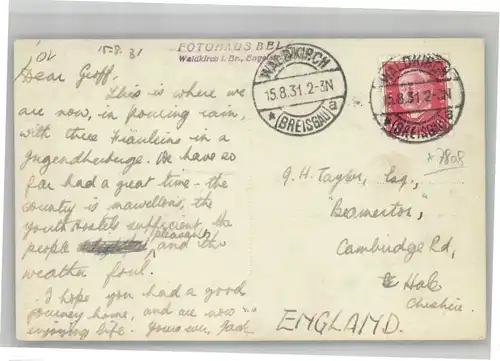 15-8.31
FOTOHAUS BEL
Waldkirch i. Br., Enge
WALDKIRCH
15.8.31.2-3N
* (BREISGAU) a
WALDKIRCH
15.8.31.2-3N
* (BREISGAU) a
Dear Geoff,
This is where we
are now, in pouring rain,
with three Fräuleins in a
Jugendherberge. We have so
far had a great time - the
country is marvellous, the
youth hostels sufficient, the
people pleasant, and the
weather foul.
I hope you had a good
journey home, and are now
enjoying life. Yours ever, Jack
7808
G. H. Taylor, Esq.,
Beamerton,
Cambridge Rd,
Hale
Cheshire.
ENGLAND.